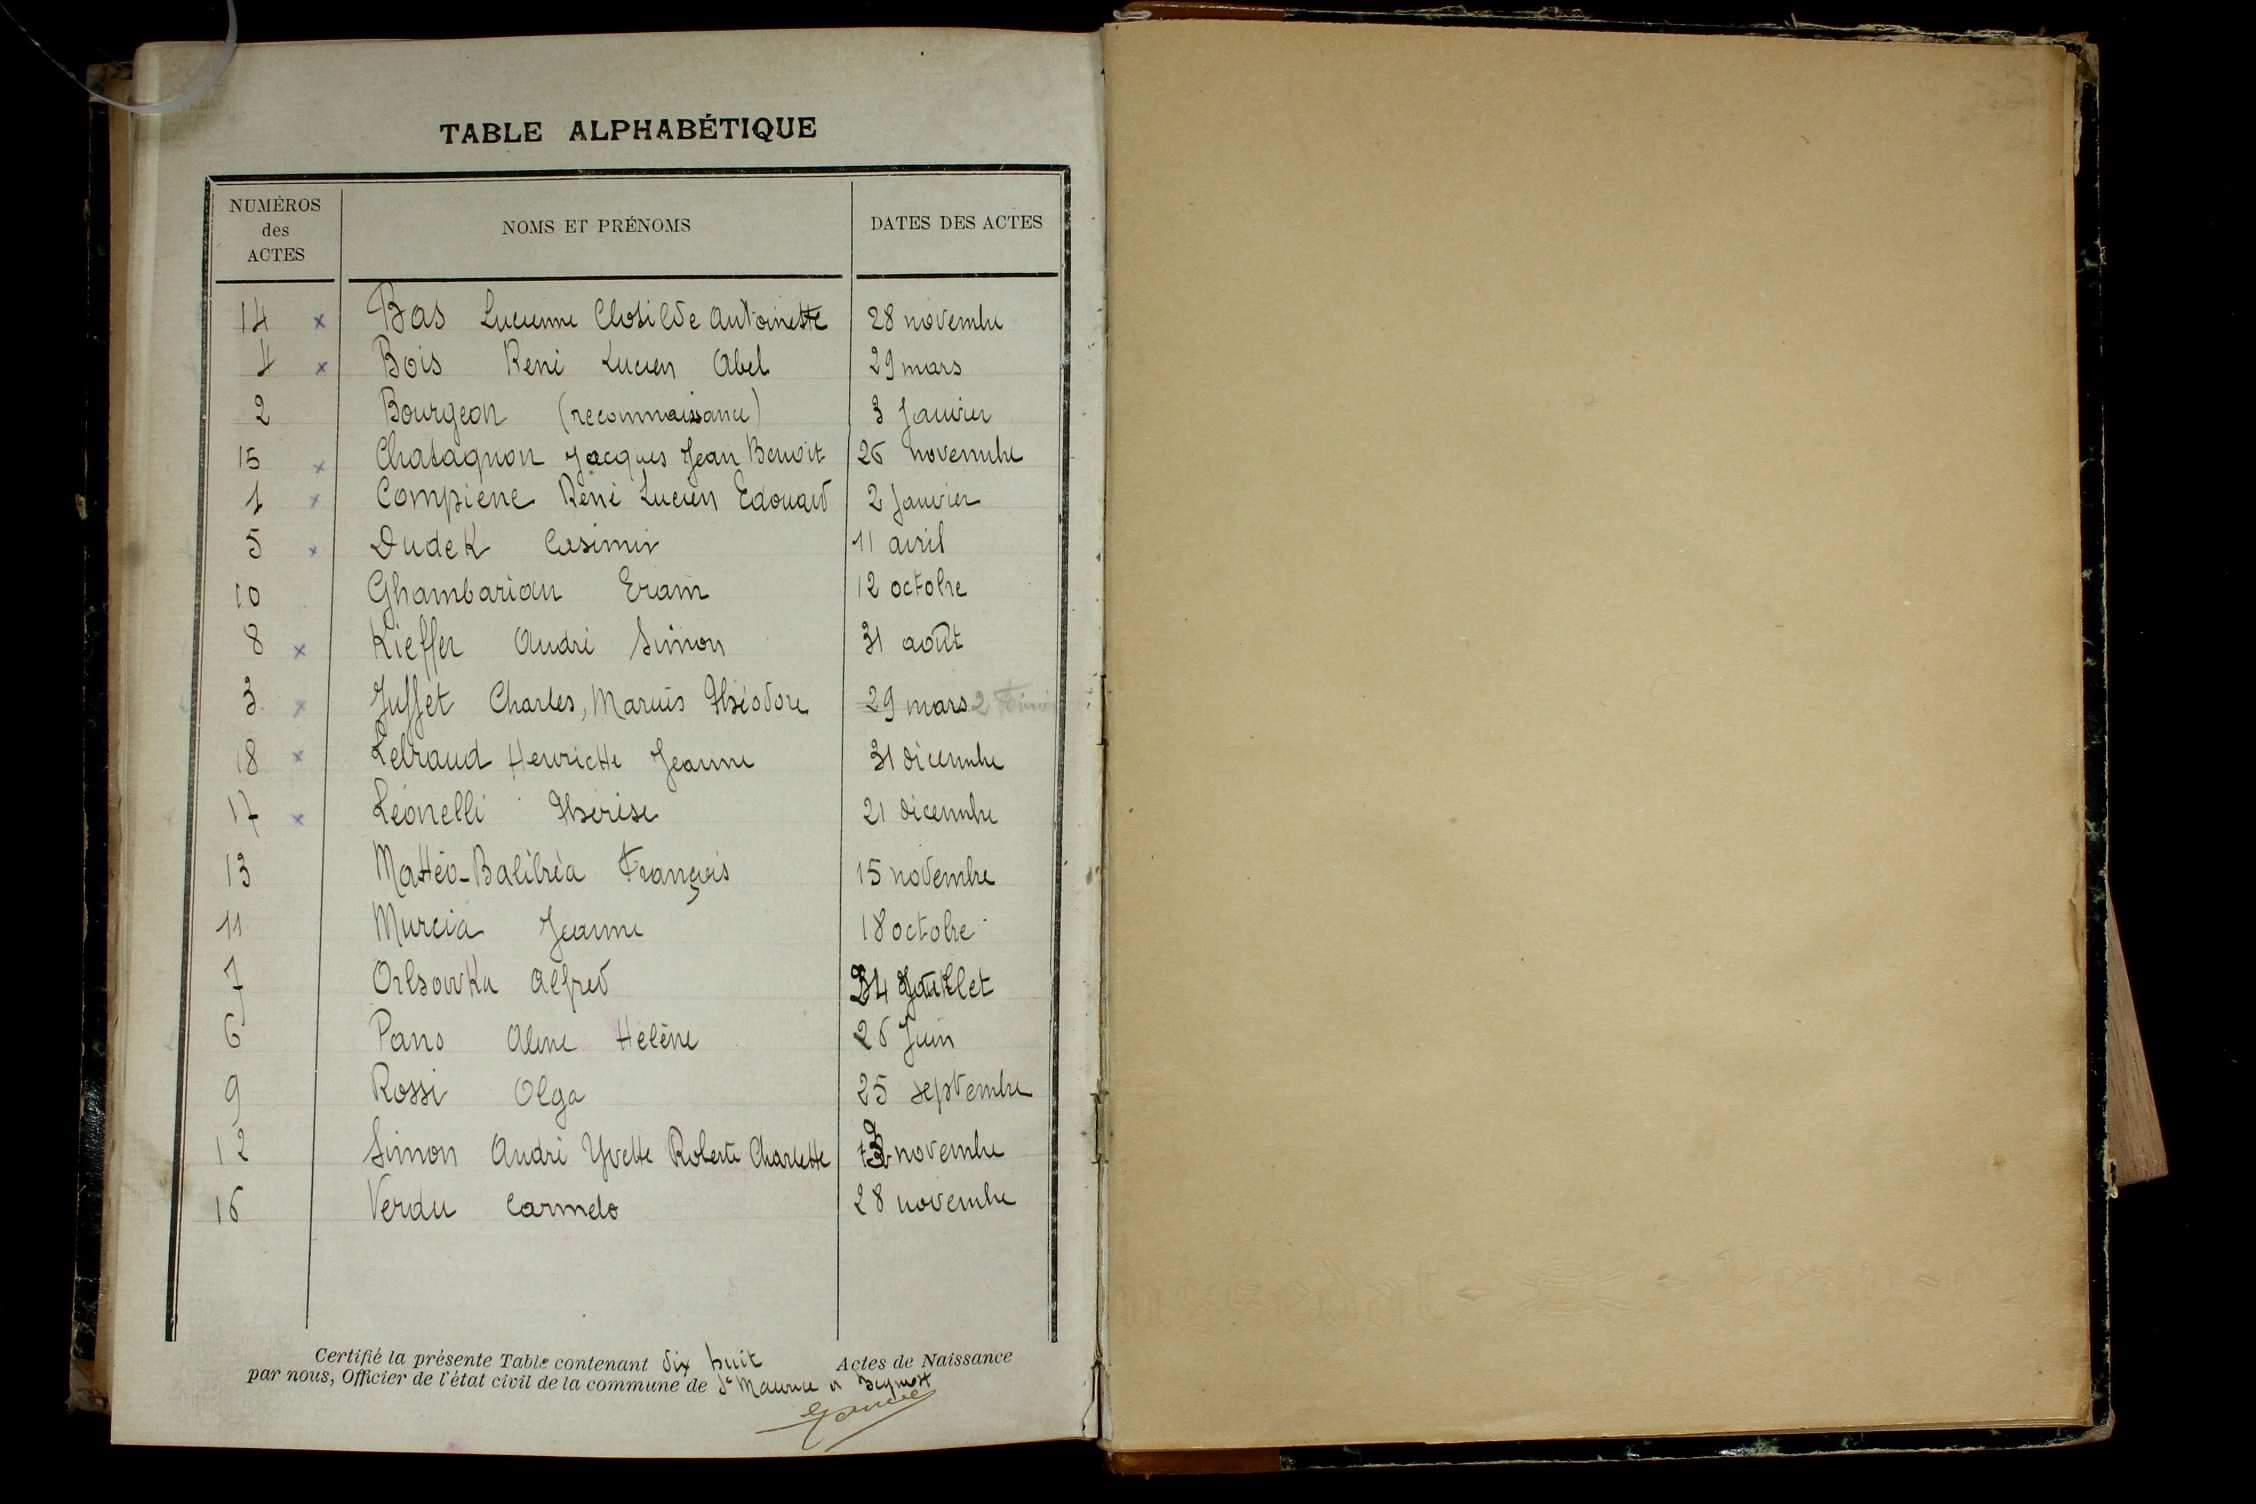 TABLE ALPHABÉTIQUE
NUMÉROS des ACTES NOMS ET PRÉNOMS DATES DES ACTES
14 x Bas Lucienne Clotilde Antoinette 28 novembre
4 x Bois René Lucien Abel 29 mars
2 Bourgeon (reconnaissance) 3 Janvier
15 x Chatagnon Jacques Jean Benoit 26 novembre
1 x Compiene René Lucien Edouard 2 Janvier
5 x Dudek Casimir 11 avril
10 Ghambarian Eram 12 octobre
8 x Kieffer André Simon 31 août
3 x Juffet Charles, Marius Théodore 29 mars 2
18 x Lebraud Henriette Jeanne 31 décembre
17 x Léonelli Thérèse 21 décembre
13 Mattéo-Balibréa François 15 novembre
11 Murcia Jeanne 18 octobre
7 Alfred Juillet
6 Pano Aline Hélène 26 Juin
9 Rossi Olga 25 septembre
12 Simon André Yvette Roberte Charlette novembre
16 Verdu Carmelo 28 novembre
Certifié la présente Table contenant dix huit Actes de Naissance
par nous, Officier de l'état civil de la commune de St Maurice de Beynost